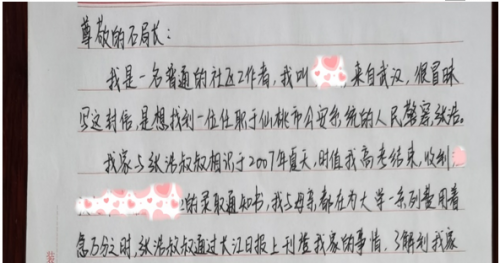 尊敬的石局长：
我是一名普通的社区工作者，我叫 来自武汉，很冒昧
写这封信，是想找到一位任职于仙桃市公安系统的人民警察，张浩。
我家与张浩叔叔相识于2007年夏天，时值我高考结束，收到
的录取通知书，我与母亲都在为大学一系列费用着
急万分之时，张浩叔叔通过大江日报上刊登我家的事情，了解到我家